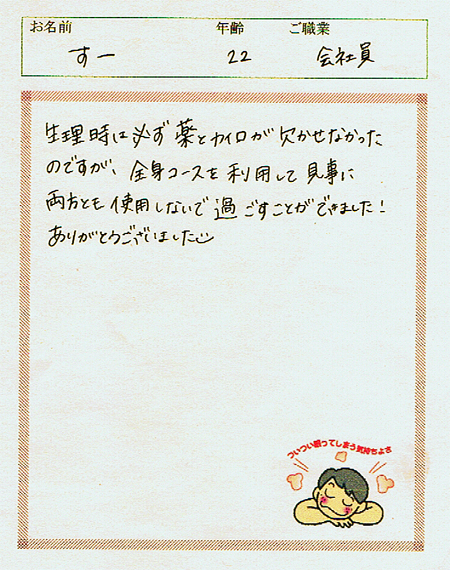 お名前 年齢 ご職業
すー 22 会社員
生理時は必ず薬とカイロが欠かせなかった
のですが、全身コースを利用して見事に
両方とも使用しないで過ごすことができました!
ありがとうございました
ついつい眠ってしまう気持ちよさ